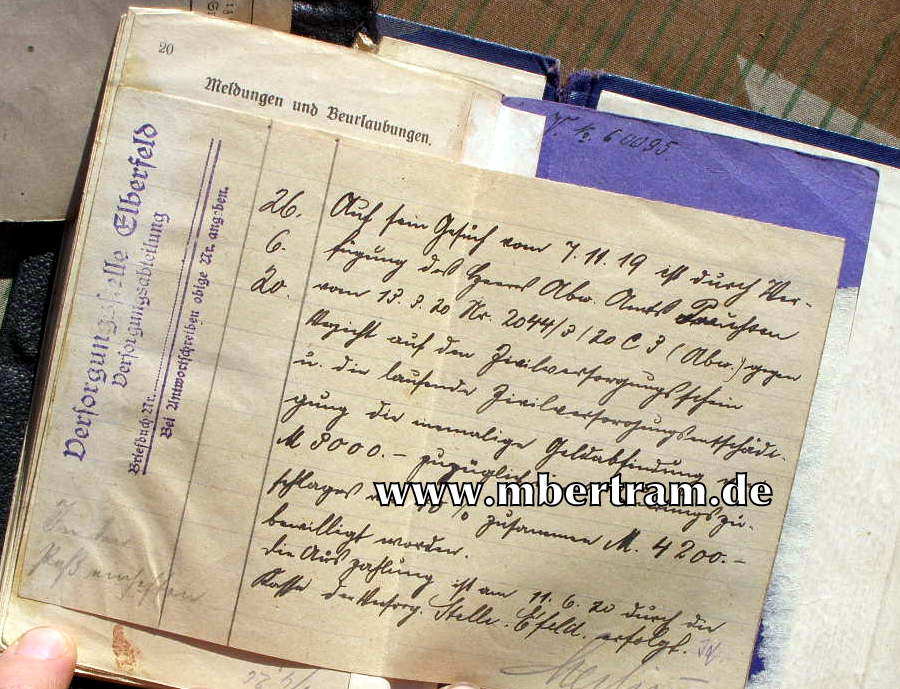 20
Meldungen und Beurlaubungen.
V. 60095
Versorgungsstelle Elberfeld
Versorgungsabteilung
Briefbuch-Nr.
Bei Antwortschreiben obige Nr. angeben.
26.
6.
20.
Auf sein Gesuch vom 7.11.19 ist durch Ver-
fügung des Herrn Abw. Amts
vom 20 Nr. 2044/3/20 C 3 (Abw.) gegen
Verzicht auf den Zivilversorgungsschein
u. die laufende Zivilversorgungsentschädi-
gung die einmalige Geldabfindung
M 3000.- zuzüglich
schlages zusammen M. 4200.-
bewilligt worden.
die Auszahlung ist am 11.6.20 durch die
Kasse der Versorg. Stelle. Efeld. erfolgt.
Paß einheften
www.mbertram.de